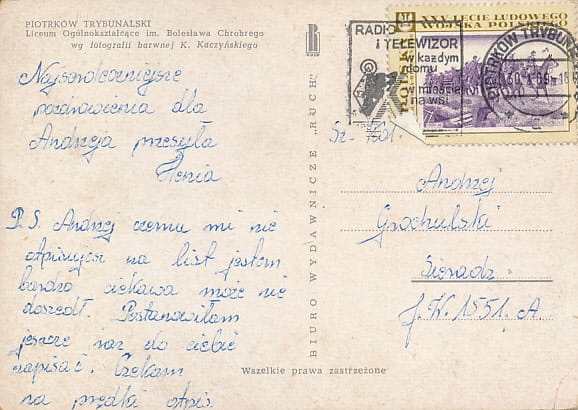 PIOTRKÓW TRYBUNALSKI
Liceum Ogólnokształcące im. Bolesława Chrobrego
wg fotografii barwnej K. Kaczyńskiego
Najserdeczniejsze
pozdrowienia dla
Andrzeja przesyła
Henia
P.S. Andrzej czemu mi nie
odpisujesz na list jestem
bardzo ciekawa może nie
doszedł. Postanowiłam
jeszcze raz do ciebie
napisać. Czekam
na prędki odpis.
BIURO WYDAWNICZE „RUCH"
RADIO
i TELEWIZOR
w każdym
domu
w mieście
na wsi
XXV LECIE LUDOWEGO
WOJSKA POLSKIEGO
PIOTRKÓW TRYBUNA
Sz. Kol.
Andrzej
Grochulski
Sieradz
J.W. 1551. A.
Wszelkie prawa zastrzeżone